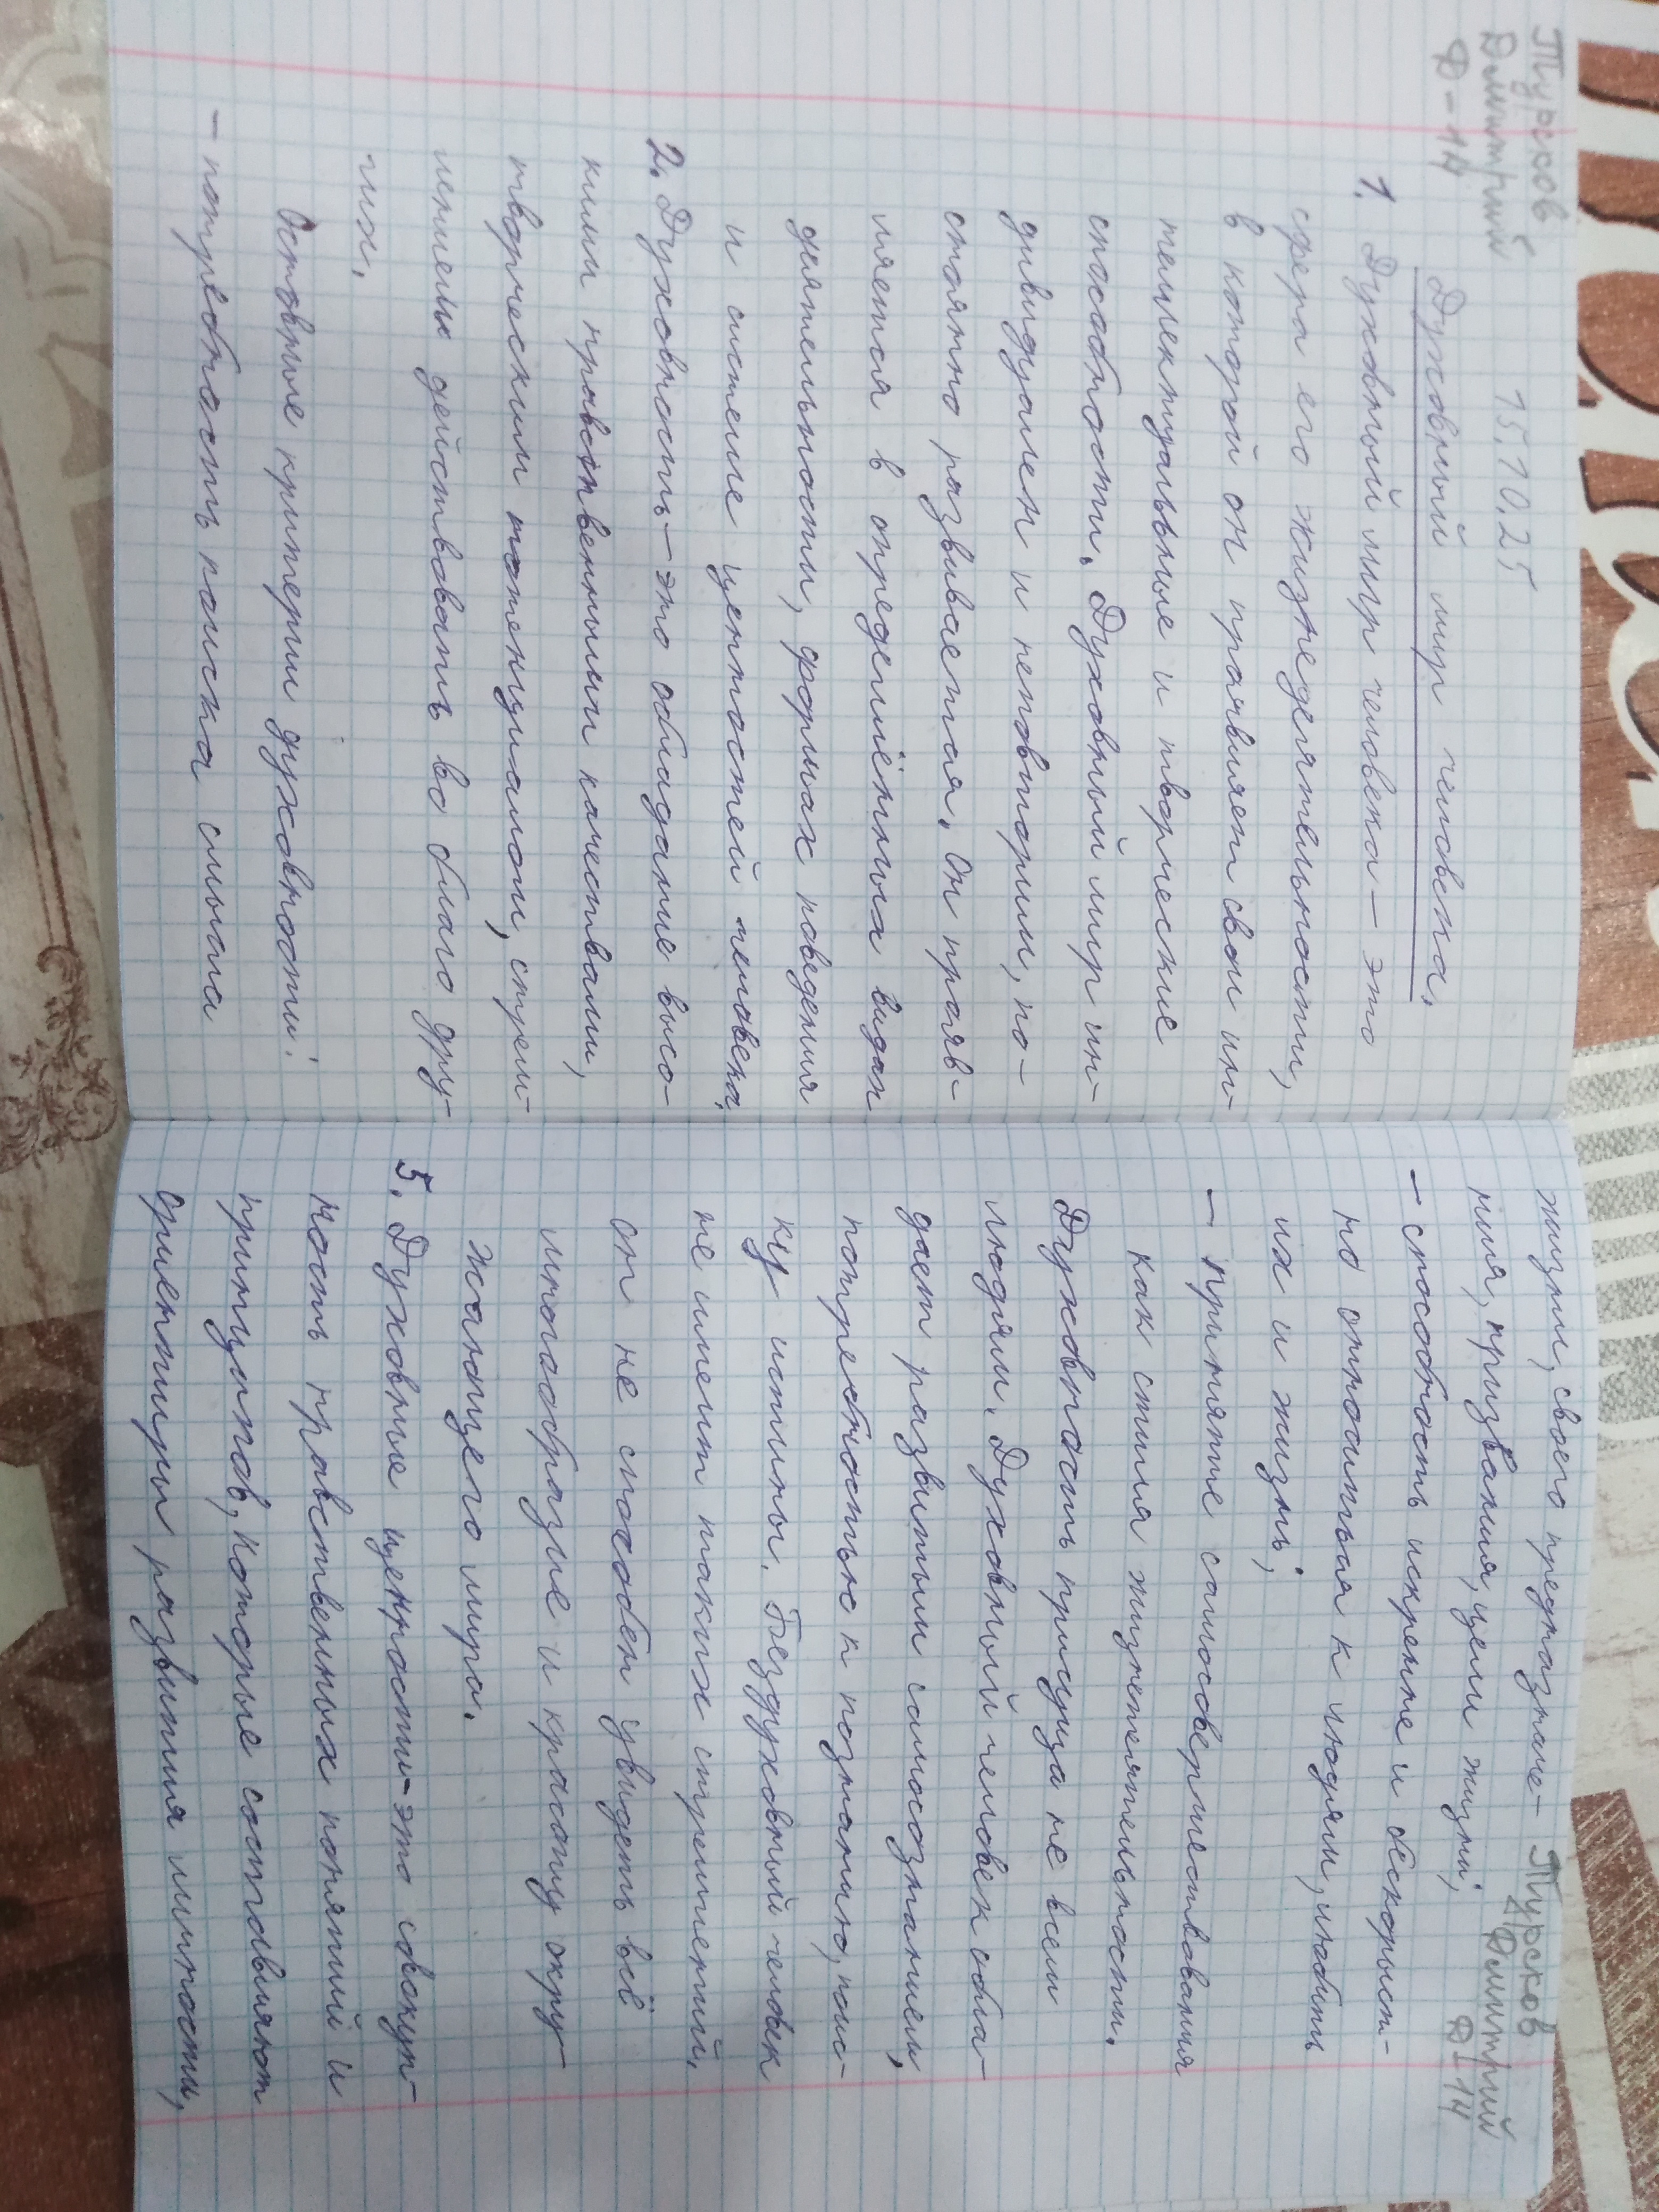 Пурсков
Дмитрий
Ф-14
15.10.25
Духовный мир человека.
1. Духовный мир человека – это
сфера его жизнедеятельности,
в которой он проявляет свои ин-
теллектуальные и творческие
способности. Духовный мир ин-
дивидуален и неповторим, по-
стоянно развивается. Он прояв-
ляется в определённых видах
деятельности, формах поведения
и системе ценностей человека.
2. Духовность – это обладание высо-
кими нравственными качествами,
творческим потенциалом, стрем-
лением действовать во благо дру-
гих.
Основные критерии духовности:
– потребность поиска смысла
Пурсков
Дмитрий
Ф-14
жизни, своего предназначе-
ния, призвания, цели жизни;
– способность искренне и бескорыст-
но относиться к людям, любить
их и жизнь;
– принятие самосовершенствования
как стиля жизнетельности.
Духовность присуща не всем
людям. Духовный человек обла-
дает развитым самосознанием,
потребностью к познанию, поис-
ку истины. Бездуховный человек
не имеет таких стремлений,
он не способен увидеть всё
многообразие и красоту окру-
жающего мира.
5. Духовные ценности – это совокуп-
ность нравственных понятий и
принципов, которые составляют
ориентиры развития личности,